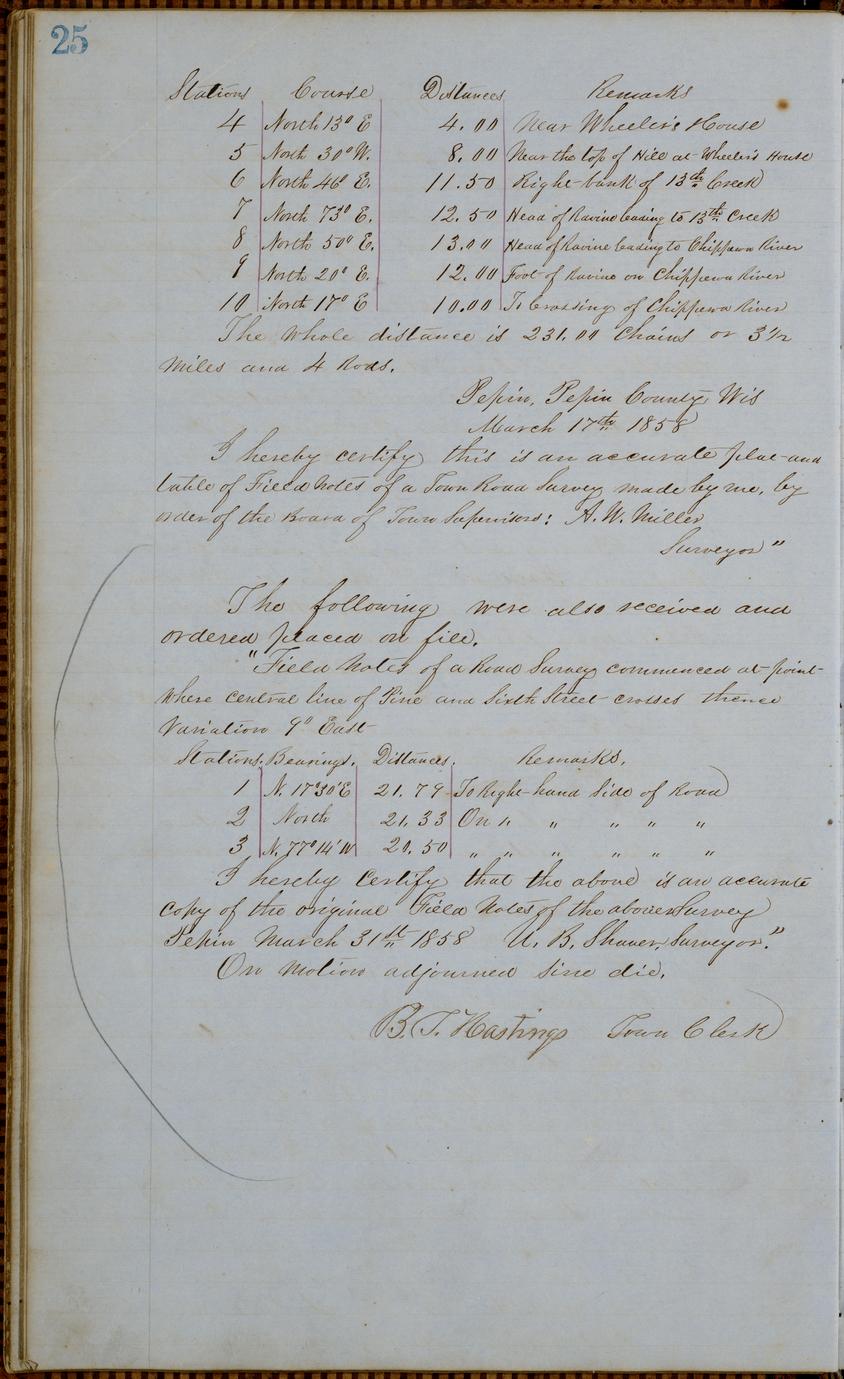 25
Stations Course Distances Remarks
4 North 13° E 4.00 Near Wheeler's House
5 North 30° W. 8.00 Near the top of Hill at Wheeler's House
6 North 46° E. 11.50 Right bank of 13th Creek
7 North 73° E. 12.50 Head of Ravine leading to 13th Creek
8 North 50° E. 13.00 Head of Ravine leading to Chippewa River
9 North 20° E. 12.00 Foot of Ravine on Chippewa River
10 North 17° E 10.00 To Crossing of Chippewa River
The whole distance is 231.00 Chains or 3 1/2
miles and 4 Rods.
Pepin, Pepin County, Wis
March 17th 1858
I hereby certify this is an accurate plat and
table of Field Notes of a Town Road Survey made by me, by
order of the Board of Town Supervisors: A. W. Miller
Surveyor"
The following were also received and
ordered placed on file.
"Field Notes of a Road Survey commenced at point
where central line of Pine and Sixth Street crosses thence
Variation 9° East
Stations. Bearings. Distances. Remarks.
1 N. 17°30'E 21.79 To Right hand side of Road
2 North 21.33 On " " " " "
3 N. 77°14'W 20.50 " " " " " "
I hereby certify that the above is an accurate
copy of the original Field Notes of the above Survey
Pepin March 31st 1858 U. B. Shaver, Surveyor."
On motion adjourned sine die.
B. T. Hastings Town Clerk